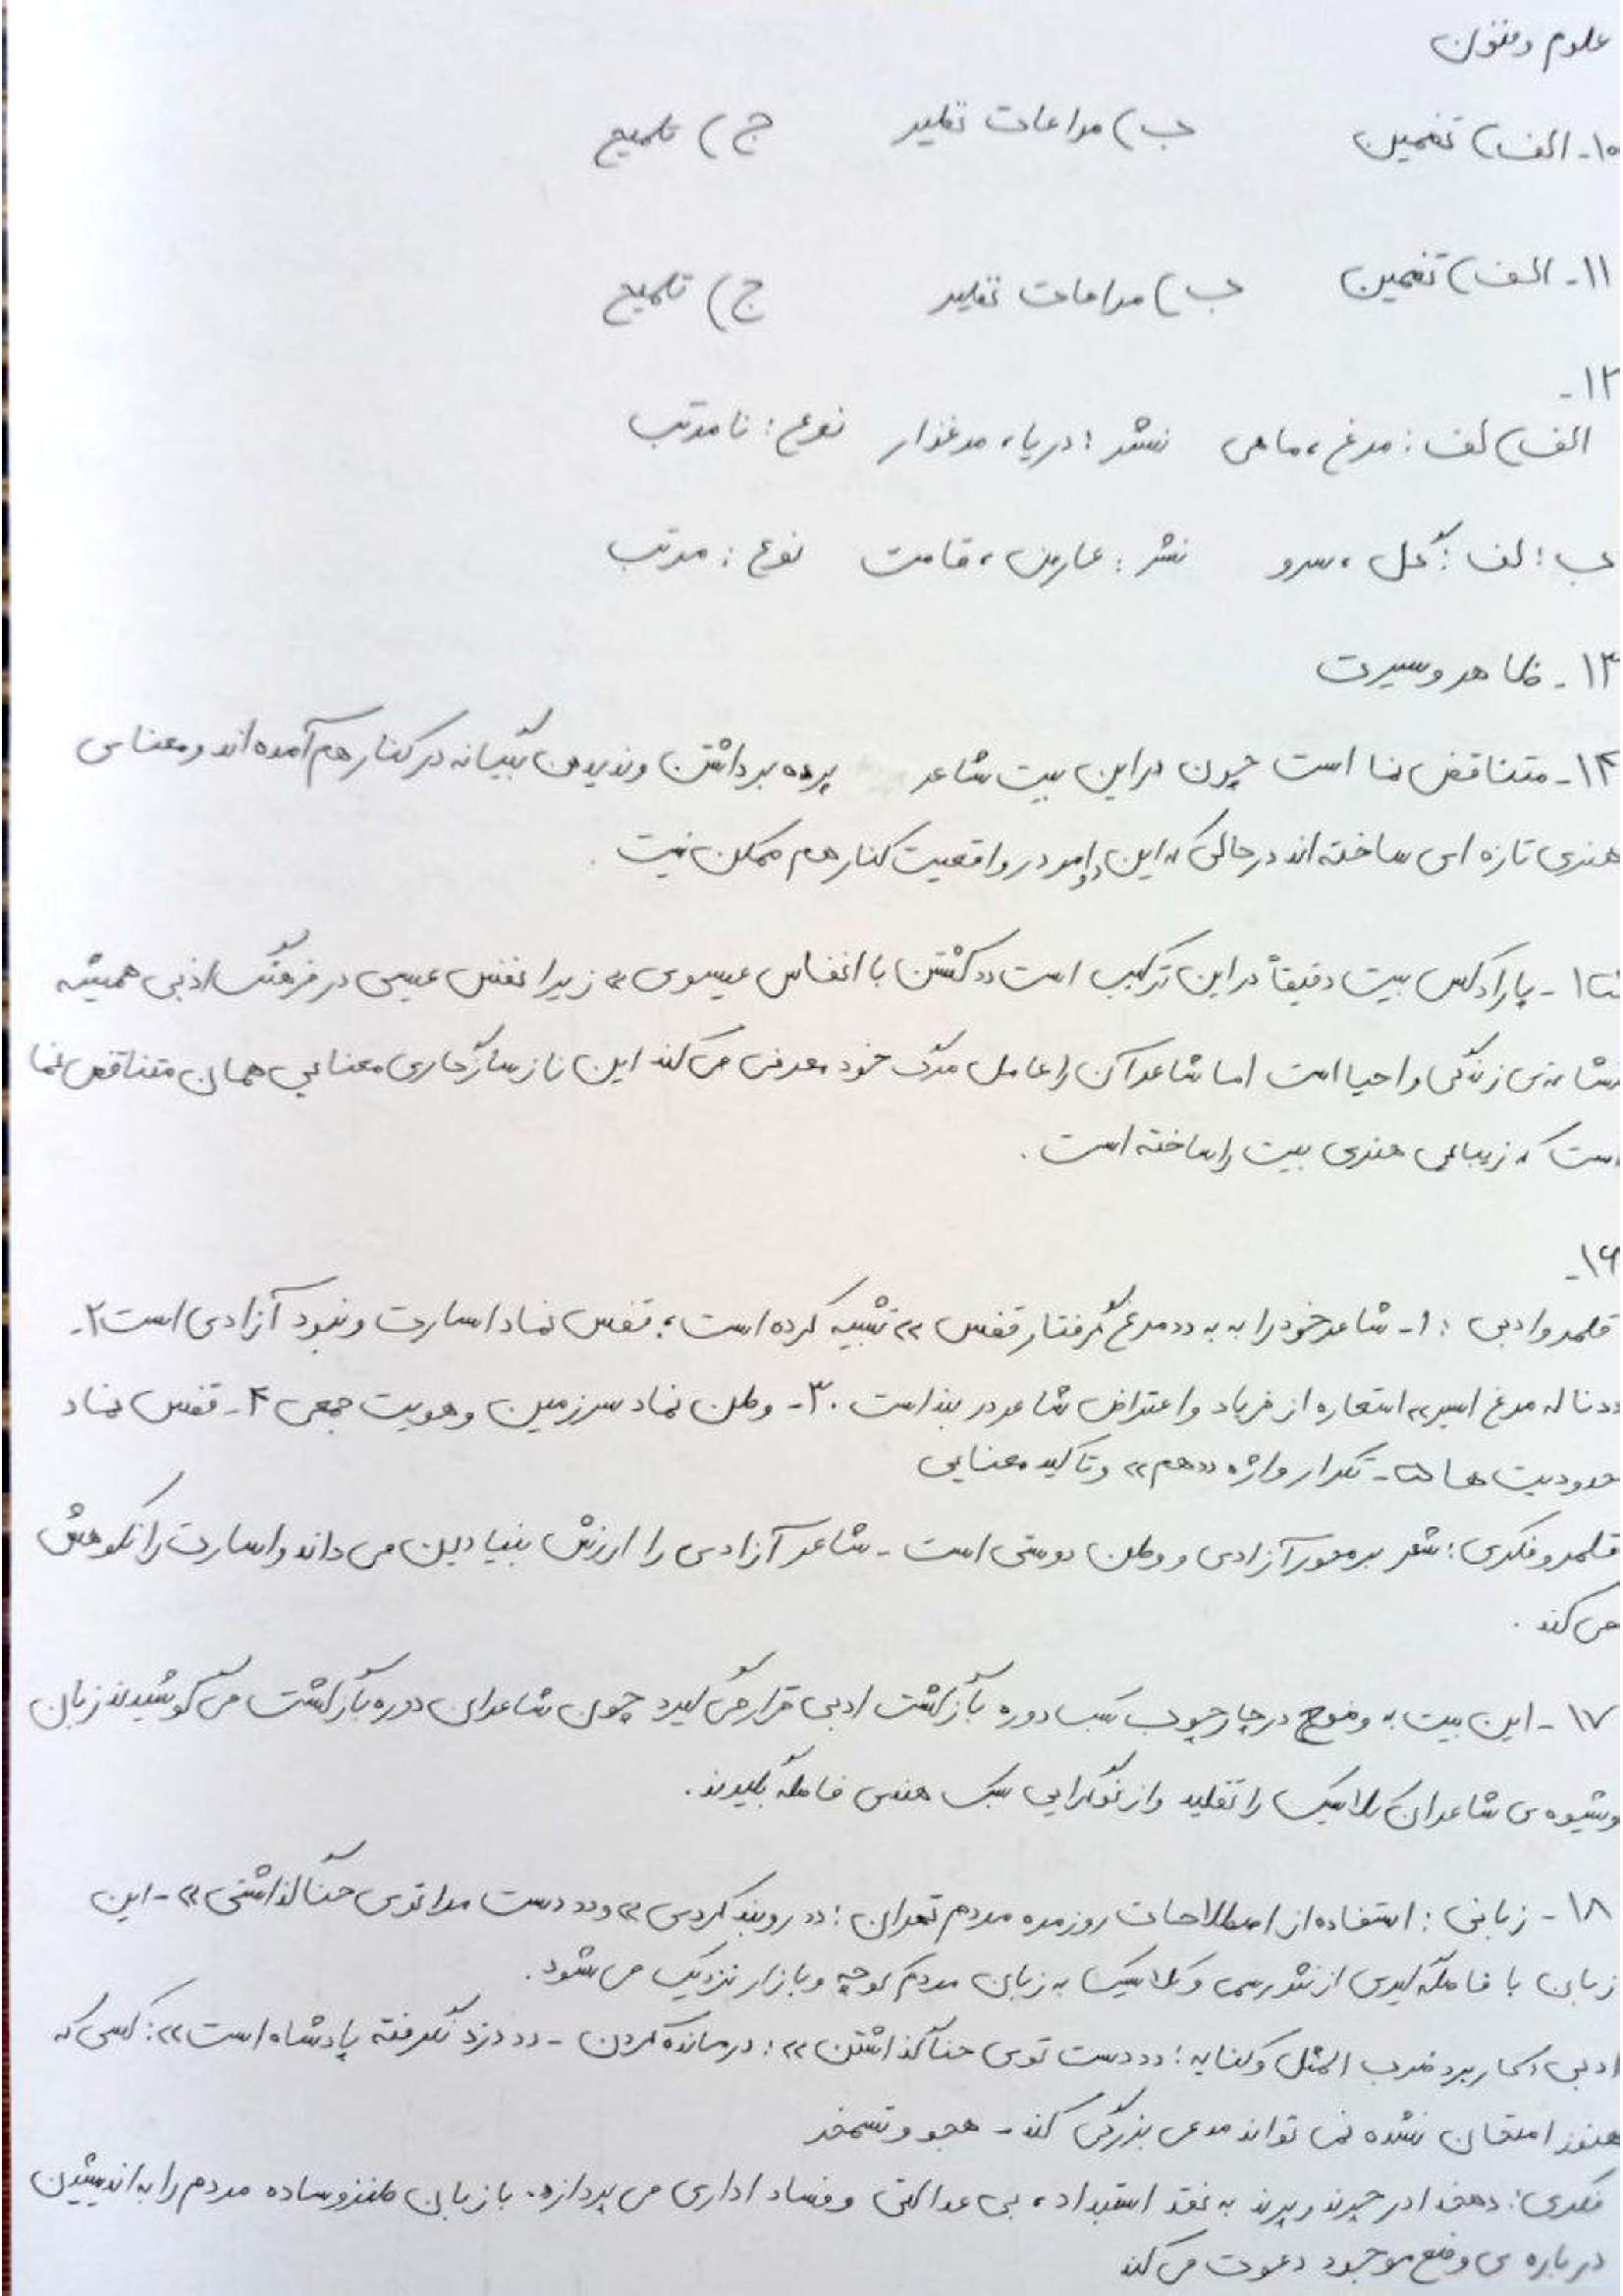 علوم و فنون
۱۰- الف) تضمین ب) مراعات نظیر ج) تلمیح
۱۱- الف) تضمین ب) مراعات نظیر ج) تلمیح
۱۲-
الف) لف: مرغ، ماهی نشر: دریا، مرغزار نوع: نامرتب
ب: لف: گل، سرو نشر: عارض، قامت نوع: مرتب
۱۳- ظاهر و سیرت
۱۴- متناقض نما است چون در این بیت شاعر پرده برداشتن و ندیدن در کنار هم آمده اند و معنای
هنری تازه ای ساخته اند در حالی که این دو امور در واقعیت کنار هم ممکن نیست.
۱۵- پارادکس بیت دقیقاً در این ترکیب است «کشتن با انفاس عیسوی» زیرا نفس عیسی در فرهنگ ادبی همیشه
نشانه ی زندگی و احیا است اما شاعر آن را عامل مرگ خود معرفی می کند این ناسازگاری معنایی همان متناقض نما
است که زیبایی هنری بیت را ساخته است.
۱۶-
قلمرو ادبی: ۱- شاعر خود را به به «مرغ گرفتار قفس» تشبیه کرده است؛ قفس نماد اسارت و نبود آزادی است ۲-
«ناله مرغ اسیر» استعاره از فریاد و اعتراض شاعر در بند است. ۳- وطن نماد سرزمین و هویت جمعی ۴- قفس نماد
محدودیت ها ۵- تکرار واژه «هم» و تاکید معنایی
قلمرو فکری: شعر بر محور آزادی و وطن دوستی است - شاعر آزادی را ارزش بنیادین می داند و اسارت را نکوهش
می کند.
۱۷- این بیت به وضوح در چارچوب سبک دوره بازگشت ادبی قرار می گیرد چون شاعران دوره بازگشت می کوشیدند زبان
و شیوه ی شاعران کلاسیک را تقلید و از نوگرایی سبک هندی فاصله بگیرند.
۱۸- زبانی: استفاده از اصطلاحات روزمره مردم تهران: «روبند کردی» و «دست مرا توی حنا گذاشتی» - این
زبان با فاصله گیری از نثر رسمی و کلاسیک به زبان مردم کوچه و بازار نزدیک می شود.
ادبی: کاربرد ضرب المثل و کنایه: «دست توی حنا گذاشتن»: درمانده کردن - «دزد نگرفته پادشاه است»: کسی که
هنوز امتحان نشده نمی تواند مدعی بزرگی کند - هجو و تسمخر
فکری: دهخدا در چرند و پرند به نقد استبداد، بی عدالتی و فساد اداری می پردازد. با زبان طنز و ساده مردم را به اندیشیدن
درباره ی وضع موجود دعوت می کند